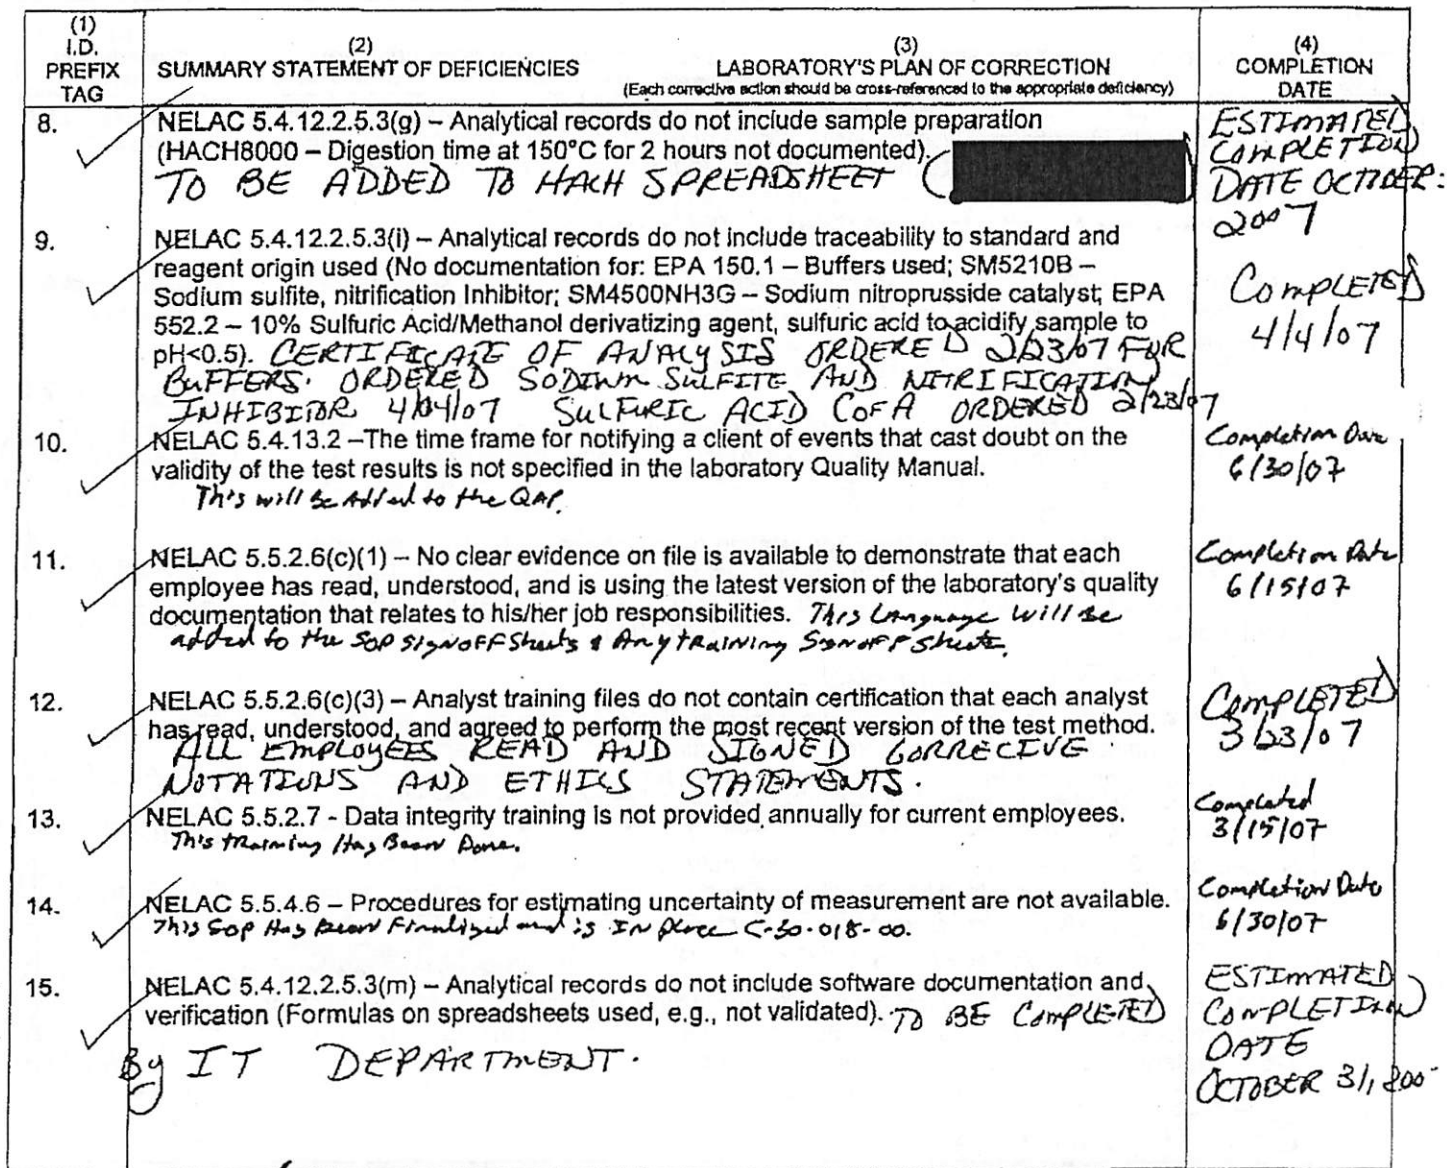 (1)
I.D.
PREFIX
TAG
(2)
SUMMARY STATEMENT OF DEFICIENCIES
(3)
LABORATORY'S PLAN OF CORRECTION
(Each corrective action should be cross-referenced to the appropriate deficiency)
(4)
COMPLETION
DATE
8.
NELAC 5.4.12.2.5.3(g) – Analytical records do not include sample preparation
(HACH8000 – Digestion time at 150°C for 2 hours not documented).
TO BE ADDED TO HACH SPREADSHEET (
ESTIMATED
COMPLETION
DATE OCTOBER:
2007
9.
NELAC 5.4.12.2.5.3(i) – Analytical records do not include traceability to standard and
reagent origin used (No documentation for: EPA 150.1 – Buffers used; SM5210B –
Sodium sulfite, nitrification Inhibitor; SM4500NH3G – Sodium nitroprusside catalyst; EPA
552.2 – 10% Sulfuric Acid/Methanol derivatizing agent, sulfuric acid to acidify sample to
pH<0.5). CERTIFICATE OF ANALYSIS ORDERED 2/23/07 FOR
BUFFERS. ORDERED SODIUM SULFITE AND NITRIFICATION
INHIBITOR 4/04/07 SULFURIC ACID C OF A ORDERED 2/23/07
COMPLETED
4/4/07
10.
NELAC 5.4.13.2 –The time frame for notifying a client of events that cast doubt on the
validity of the test results is not specified in the laboratory Quality Manual.
This will be Added to the QAP.
Completion Date
6/30/07
11.
NELAC 5.5.2.6(c)(1) – No clear evidence on file is available to demonstrate that each
employee has read, understood, and is using the latest version of the laboratory's quality
documentation that relates to his/her job responsibilities. This Language Will Be
added to the SOP SignOFF Sheets & Any training SignOFF Sheets.
Completion Date
6/15/07
12.
NELAC 5.5.2.6(c)(3) – Analyst training files do not contain certification that each analyst
has read, understood, and agreed to perform the most recent version of the test method.
ALL EMPLOYEES READ AND SIGNED CORRECIVE
NOTATIONS AND ETHICS STATEMENTS.
COMPLETED
3/23/07
13.
NELAC 5.5.2.7 - Data integrity training is not provided annually for current employees.
This training Has Been Done.
Completed
3/15/07
14.
NELAC 5.5.4.6 – Procedures for estimating uncertainty of measurement are not available.
This SOP Has Been Finalized and is In place C-30-018-00.
Completion Date
6/30/07
15.
NELAC 5.4.12.2.5.3(m) – Analytical records do not include software documentation and
verification (Formulas on spreadsheets used, e.g., not validated). TO BE COMPLETED
By IT DEPARTMENT.
ESTIMATED
COMPLETION
DATE
OCTOBER 31,